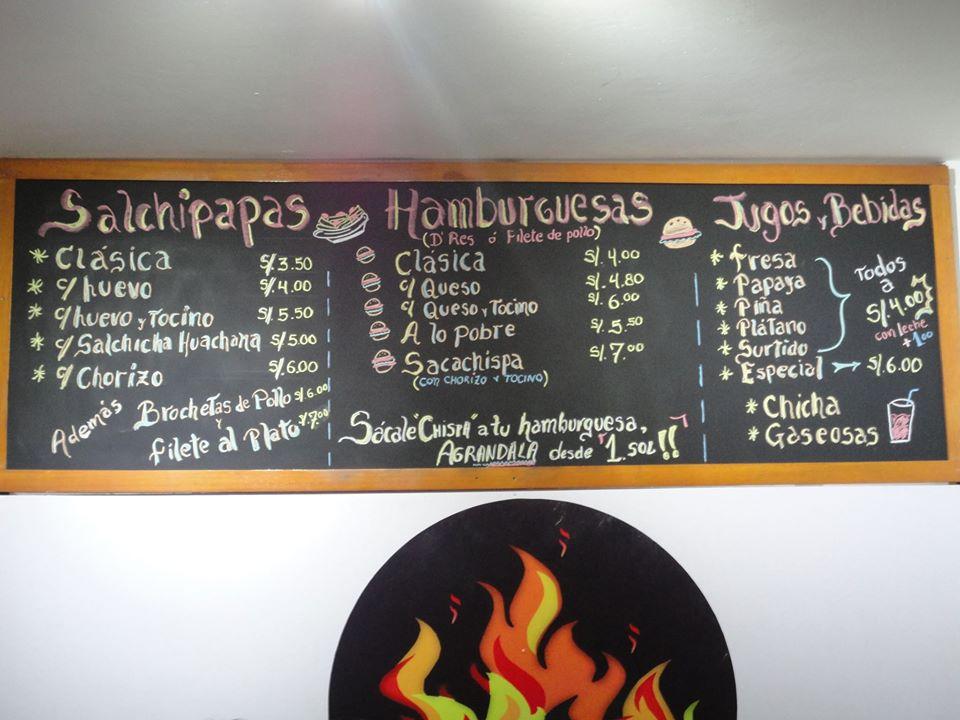 Salchipapas
* Clásica S/.3.50
* c/ huevo S/.4.00
* c/ huevo y Tocino S/.5.50
* c/ Salchicha Huachana S/.5.00
* c/ Chorizo S/.6.00
Además Brochetas de Pollo S/.6.00
y
filete al Plato S/.7.00
Hamburguesas
(D' Res ó Filete de pollo)
Clásica S/.4.00
c/ Queso S/.4.80
c/ Queso y Tocino S/.6.00
A lo pobre S/.5.50
Sacachispa S/.7.00
(con chorizo y tocino)
Sácale "Chispa" a tu hamburguesa,
AGRANDALA desde 1.SOL!!
Jugos y Bebidas
* fresa
* Papaya
* Piña
* Plátano
* Surtido
Todos
a
S/.4.00
con leche
+1.00
* Especial S/.6.00
* Chicha
* Gaseosas